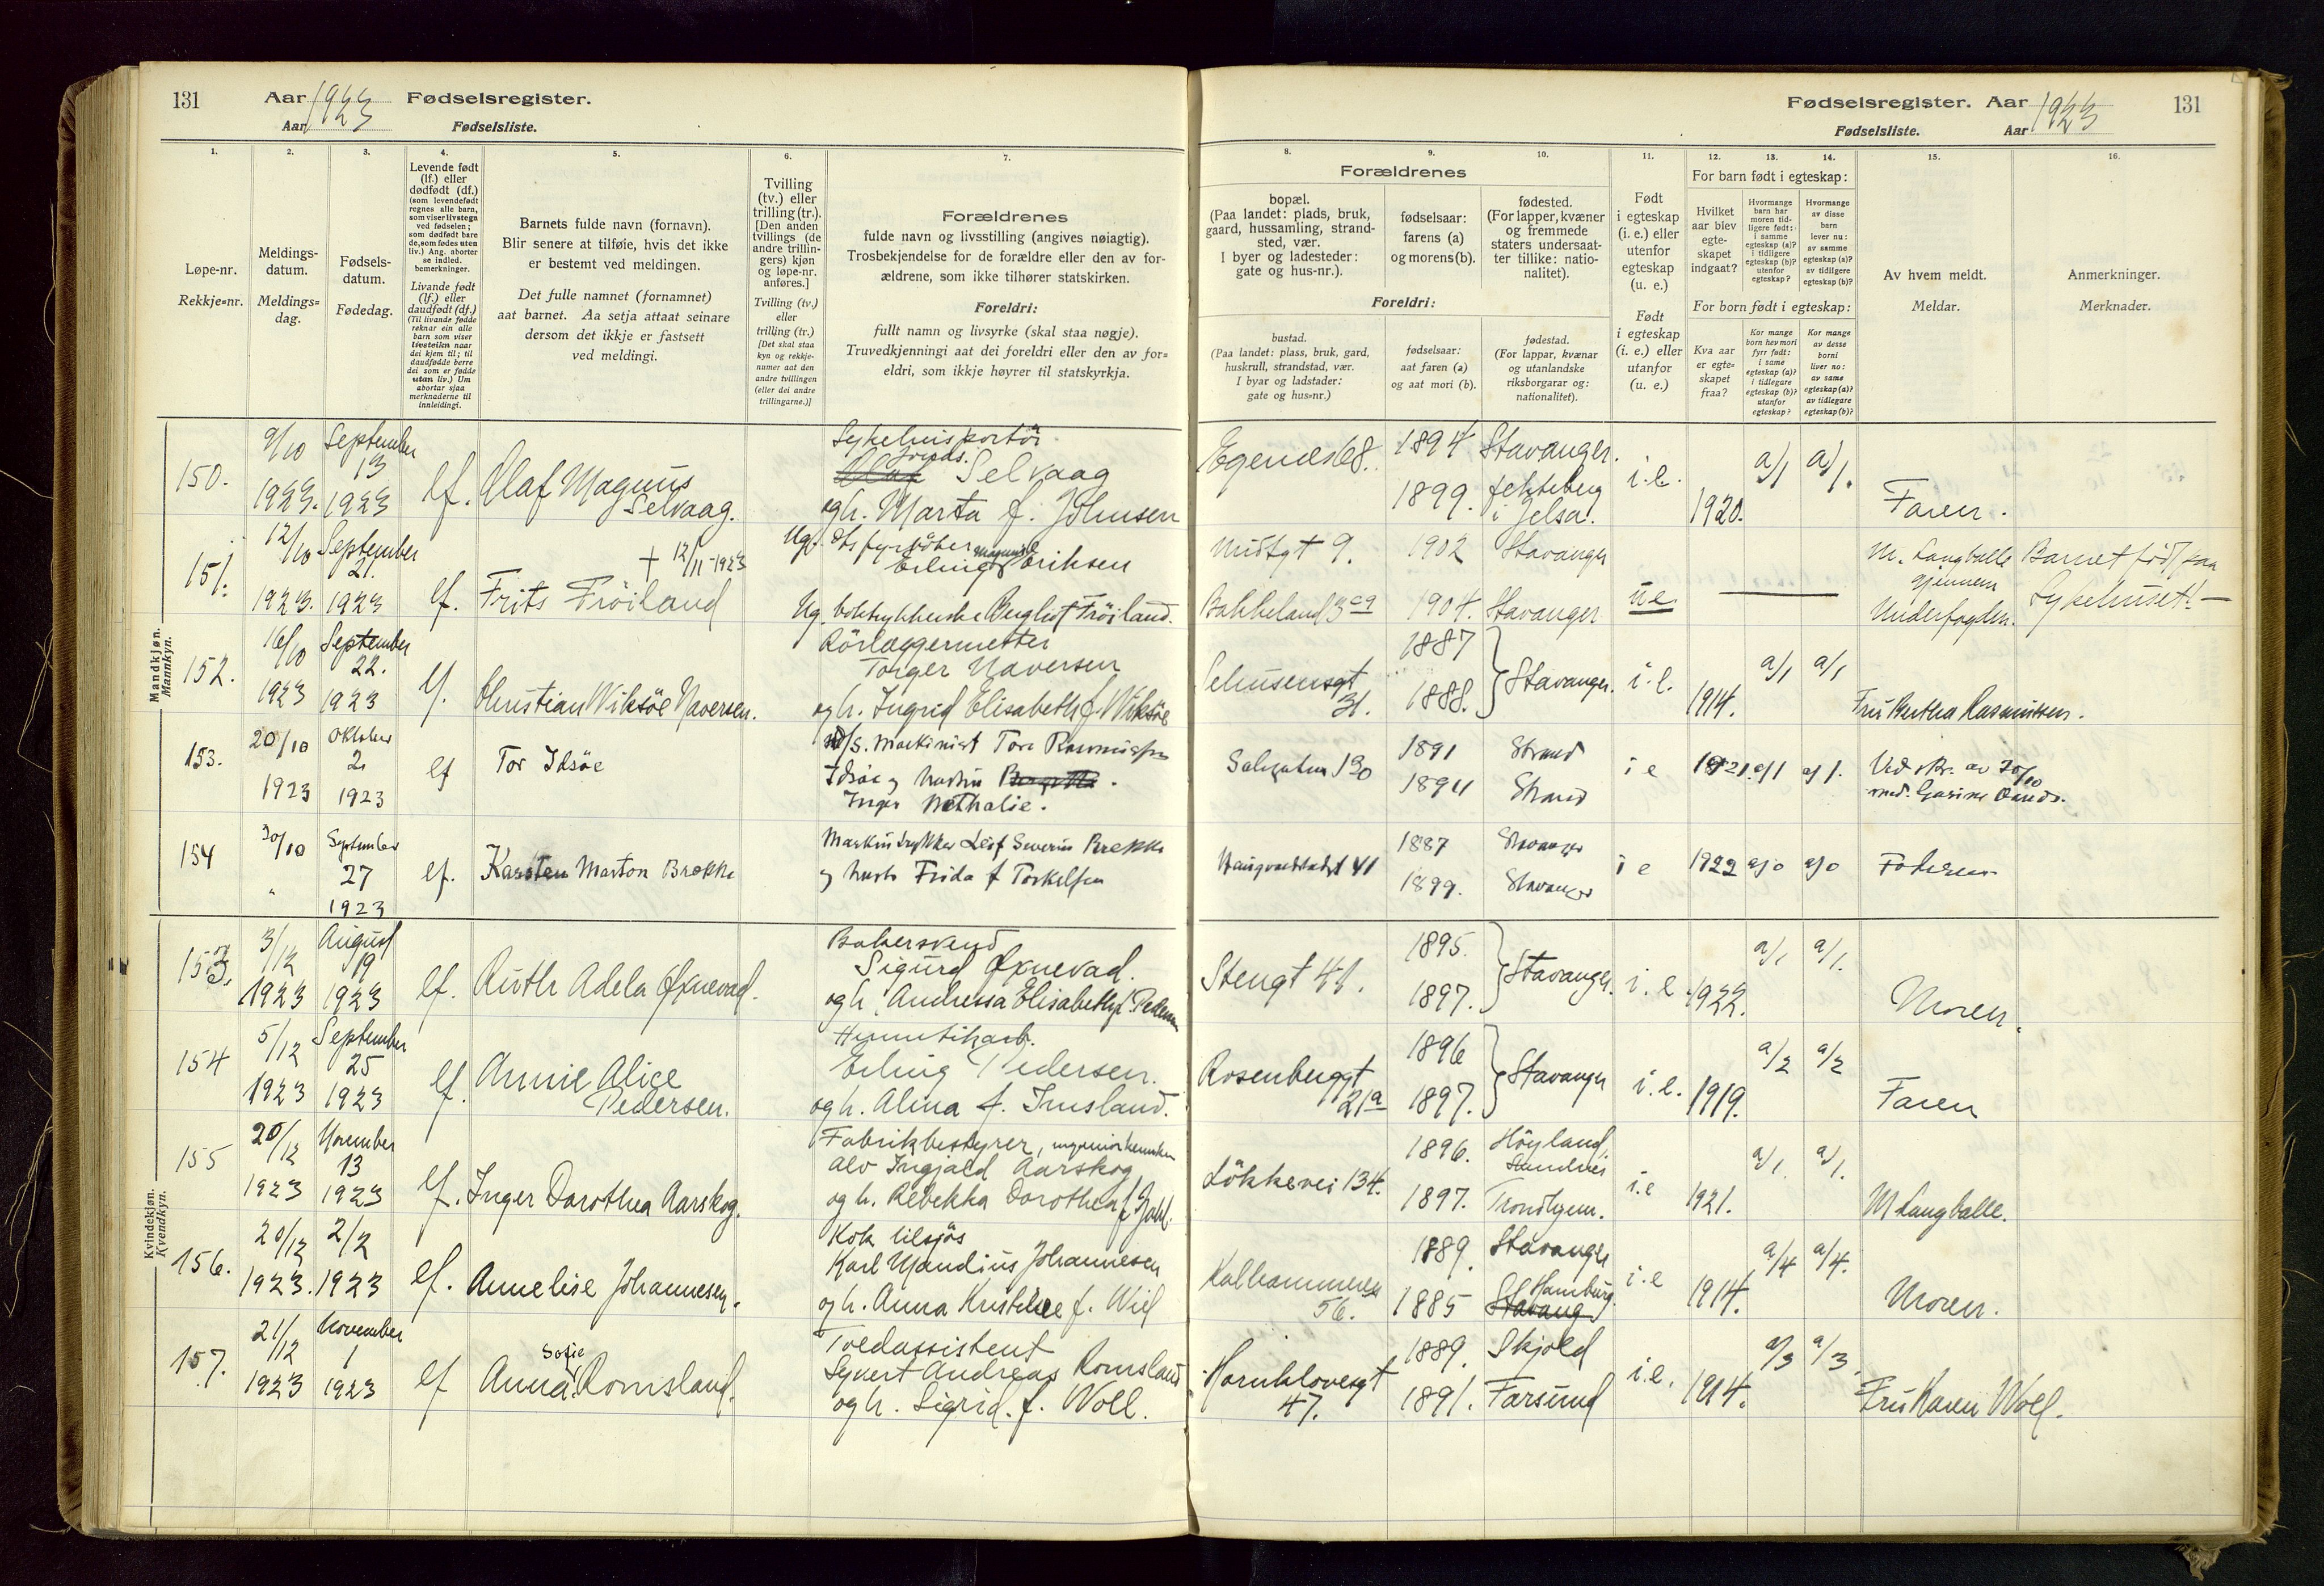 131 Aar 1923 Fødselsregister.
Aar Fødselsliste.
1. 2. 3. 4. 5. 6. 7.
Løpe-nr.
Rekkje=nr.
Meldings-
datum.
Meldings=
dag.
Fødsels-
datum.
Fødedag.
Levende født
(lf.) eller
dødfødt (df.)
(som levendefødt
regnes alle barn,
som viser livstegn
ved fødselen;
som dødfødt bare
de, som fødes uten
liv.) Ang. aborter
se indled.
bemerkninger.
Livande født
(lf.) eller
daudfødt (df.)
(Til livande fødde
reknar ein alle
barn som viser
livsteikn naar
dei kjem til; til
daudfødde berre
dei som er fødde
utan liv.) Um
abortar sjaa
merknaderne til
innleidingi.
Barnets fulde navn (fornavn).
Blir senere at tilføie, hvis det ikke
er bestemt ved meldingen.
Det fulle namnet (fornamnet)
aat barnet. Aa setja attaat seinare
dersom det ikkje er fastsett
ved meldingi.
Tvilling
(tv.) eller
trilling (tr.).
[Den anden
tvillings (de
andre trillin-
gers) kjøn
og løpe-nr.
anføres.]
Tvilling (tv.)
eller
trilling (tr.)
[Det skal staa
kyn og rekkje-
numer aat den
andre tvillingen
(eller dei andre
trillingarne.)]
Forældrenes
fulde navn og livsstilling (angives nøiagtig).
Trosbekjendelse for de forældre eller den av for-
ældrene, som ikke tilhører statskirken.
Foreldri:
fullt namn og livsyrke (skal staa nøgje).
Truvedkjenningi aat dei foreldri eller den av for=
eldri, som ikkje høyrer til statskyrkja.
Mandkjøn.
Mannkyn.
150. 9/10 1923. September 13 1923 lf. Olaf Magnus
Selvaag.
Sykehusportör
Selvaag
og h. Marta f. Johnsen
151. 12/10 1923. September 21. 1923 lf. Frits Fröiland
+ 12/11 - 1923
Erling Eriksen
Ug. Bergliot Fröiland.
152. 16/10 1923 September 22. 1923 lf. Christian Wiksöe Naversen.
Rörlæggermester
Torger Naversen
og h. Ingrid Elisabeth f. Wiksöe
153. 20/10 1923 Oktober 2 1923 lf Tor Idsöe
d/s. maskinist Tore Rasmussen
Idsöe og hustru
Inger Nathalie.
154 30/10 " September 27 1923 lf. Karsten Marton Brekke
Maskintrykker Leif Severin Brekke
og hustr Frida f Torkelsen
Kvindekjøn.
Kvendkyn.
153. 3/12 1923 August 19 1923 lf. Ruth Adela Øxnevad.
Bakersvend
Sigurd Øxnevad.
og h. Andressa Elisabeth f. Pedersen
154 5/12 1923 September 25 1923 lf. Annie Alice
Pedersen.
Hermetikarb.
Erling Pedersen.
og h. Alma f. Imsland.
155 20/12 1923 November 13 1923 lf. Inger Dorothea Aarskog.
Fabrikbestyrer,
Alv Ingjald Aarskog
og h. Rebekka Dorothea f. Dahl.
156. 20/12 1923. 2/2 1923 lf. Annelise Johannesen.
Kok tilsjös
Karl Mandius Johannesen
og h. Anna Kristine f. Wiel
157. 21/12 1923 November 1 1923 lf Anna Sofie Romsland.
Toldassistent
Syvert Andreas Romsland
og h. Sigrid. f. Woll.
Fødselsregister. Aar 1923 131
Fødselsliste. Aar
8. 9. 10. 11. 12. 13. 14. 15. 16.
Forældrenes
bopæl.
(Paa landet: plads, bruk,
gaard, hussamling, strand-
sted, vær.
I byer og ladesteder:
gate og hus-nr.).
fødselsaar:
farens (a)
og morens (b).
fødested.
(For lapper, kvæner
og fremmede
staters undersaat-
ter tillike: natio-
nalitet).
Foreldri:
bustad.
(Paa landet: plass, bruk, gard,
huskrull, strandstad, vær.
I byar og ladstader:
gate og hus=nr.)
fødselsaar:
aat faren (a)
og aat mori (b).
fødestad.
(For lappar, kvænar
og utanlandske
riksborgarar og:
nationalitet).
Født
i egteskap
(i. e.) eller
utenfor
egteskap
(u. e.)
Født
i egteskap
(i. e.) eller
utanfor
(u. e.)
For barn født i egteskap:
Hvilket
aar blev
egte-
skapet
indgaat?
Hvormange
barn har
moren tid-
ligere født:
i samme
egteskap (a)?
i tidligere
egteskap (b)?
utenfor
egteskap?
Hvormange
av disse
barn
lever nu:
av samme
egteskap (a)?
av tidligere
egteskap (b)?
For born født i egteskap:
Kva aar
er egte-
skapet
fraa?
Kor mange
born hev mori
fyrr født:
i same
egteskap (a)?
i tidlegare
egteskap (b)?
utanfor
egteskap?
Kor mange
av desse
borni
liver no:
av same
egteskap (a)?
av tidlegare
egteskap (b)?
Av hvem meldt.
Meldar.
Anmerkninger.
Merknader.
Egenes 68. 1894 Stavanger.
1899. i Jelsa. i.e. 1920. a/1 a/1. Faren.
9. 1902 Stavanger
Bakkeland 1904. Stavanger ue. M. Langballe
gjennem
Underfogden.
Barnet född paa
Sykehuset! —
Lehusensgt 31. 1887 1888. Stavanger. i.e. 1914. a/1 a/1 Fru Bertha Rasmussen.
130 1891 Strand
1894 Strand i e 1921. a/1 a/1. Ved skr. av 20/10
41 1887 Stavanger
1899. Stavanger i e 1922 a/0 a/0 Faderen
Stengt 41. 1895. 1897. Stavanger. i.e. 1922. a/1 a/1. Moren.
Rosenberggt
21a 1896 1897. Stavanger i.e. 1919. a/2 a/2 Faren
Lökkevei 134. 1896. Höyland,
1897. Trondhjem. i.e 1921. a/1. a/1. M Langballe.
Kalhammeren
56. 1889. Stavanger
1885 Hamburg. Stavang i.e 1914. a/4 a/4. Moren.
Harnklovesgt
47. 1889. Skjold
1891. Farsund i.e. 1914. a/3 a/3. Fru Karen Woll.